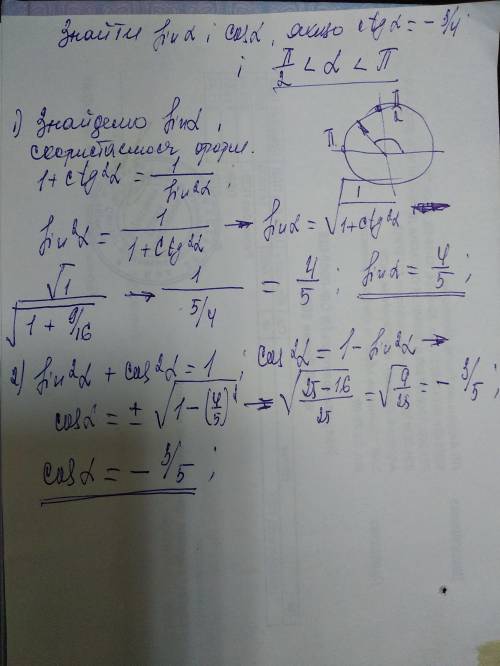 Знайти sin α і cos α, якщо ctg α = - 3/4
і π/2 < α < π
1) Знайдемо sin α,
скористаємося форм.
π/2
π
1 + ctg²α = 1/sin²α ;
sin²α = 1/(1 + ctg²α) → sin α = √(1/(1 + ctg²α))
√1/√(1 + 9/16) → 1/(5/4) = 4/5 ; sin α = 4/5 ;
2) sin²α + cos²α = 1 ; cos²α = 1 - sin²α →
cos α = ± √(1 - (4/5)²) → √((25 - 16)/25) = √(9/25) = - 3/5 ;
cos α = - 3/5 ;